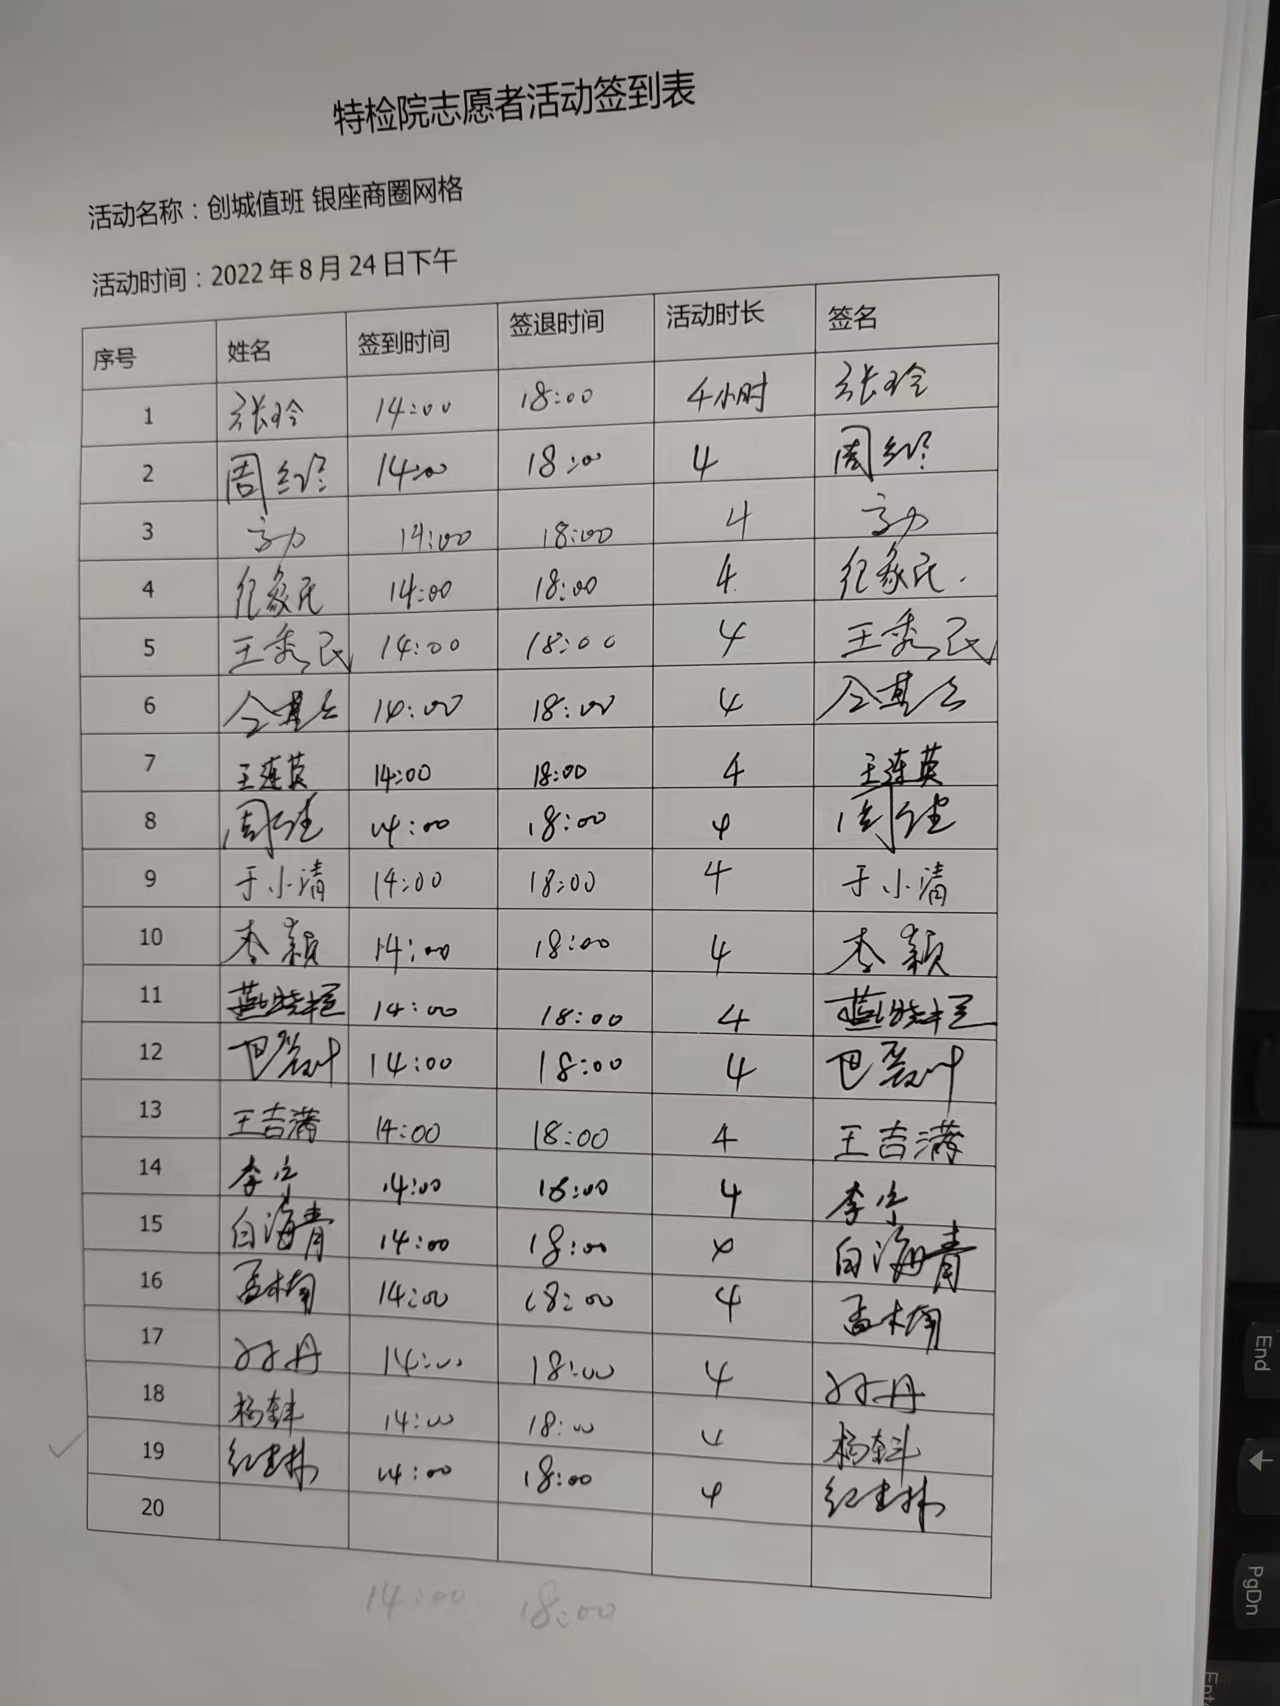 特检院志愿者活动签到表
活动名称：创城值班 银座商圈网格
活动时间：2022年8月24日下午
序号 姓名 签到时间 签退时间 活动时长 签名
1 张玲 14:00 18:00 4小时 张玲
2 周 14:00 18:00 4 周
3 14:00 18:00 4
4 纪象民 14:00 18:00 4 纪象民
5 王秀民 14:00 18:00 4 王秀民
6 14:00 18:00 4
7 王连英 14:00 18:00 4 王连英
8 周健 14:00 18:00 4 周健
9 于小清 14:00 18:00 4 于小清
10 李颖 14:00 18:00 4 李颖
11 14:00 18:00 4
12 14:00 18:00 4
13 王吉满 14:00 18:00 4 王吉满
14 李宁 14:00 18:00 4 李宁
15 白海青 14:00 18:00 4 白海青
16 孟楠 14:00 18:00 4 孟楠
17 孙丹 14:00 18:00 4 孙丹
18 杨斌 14:00 18:00 4 杨斌
19 14:00 18:00 4
20
14:00 18:00
End
PgDn